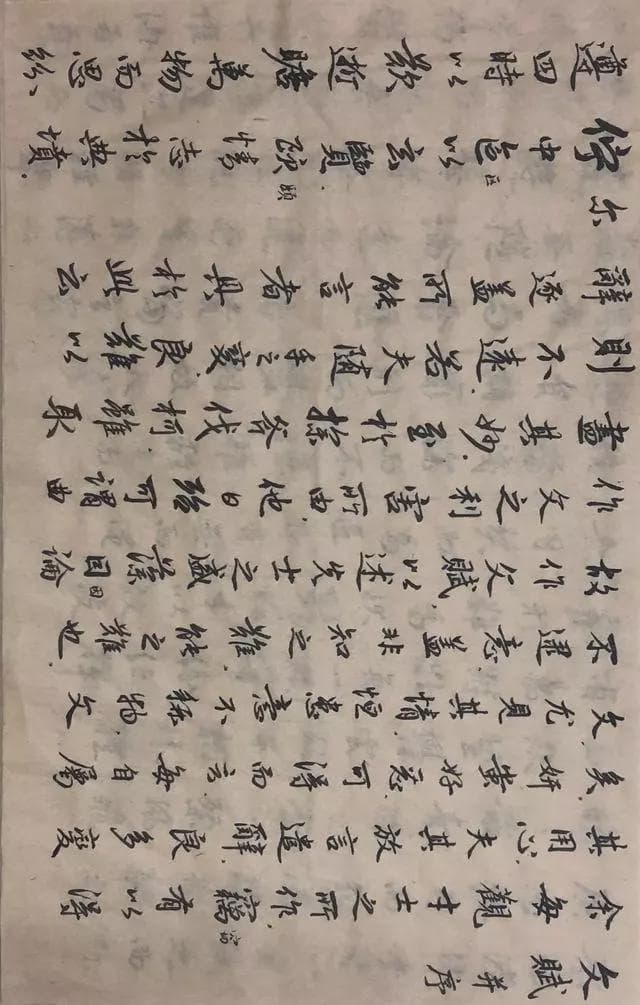 文賦并序
余每觀才士之所作竊有以得
其用心夫其放言遣辭良多變
矣妍蚩好惡可得而言每自屬
文尤見其情恒患意不稱物文
不逮意蓋非知之難能之難也
故作文賦以述先士之盛藻因因論
作文之利害所由他日殆可謂曲
盡其妙至於操斧伐柯雖取
則不遠若夫隨手之變良難以
辭逐蓋所能言者具於此云
尔
佇中區区以玄覽頤頤情志於典墳
遵四時以歎逝瞻萬物而思紛